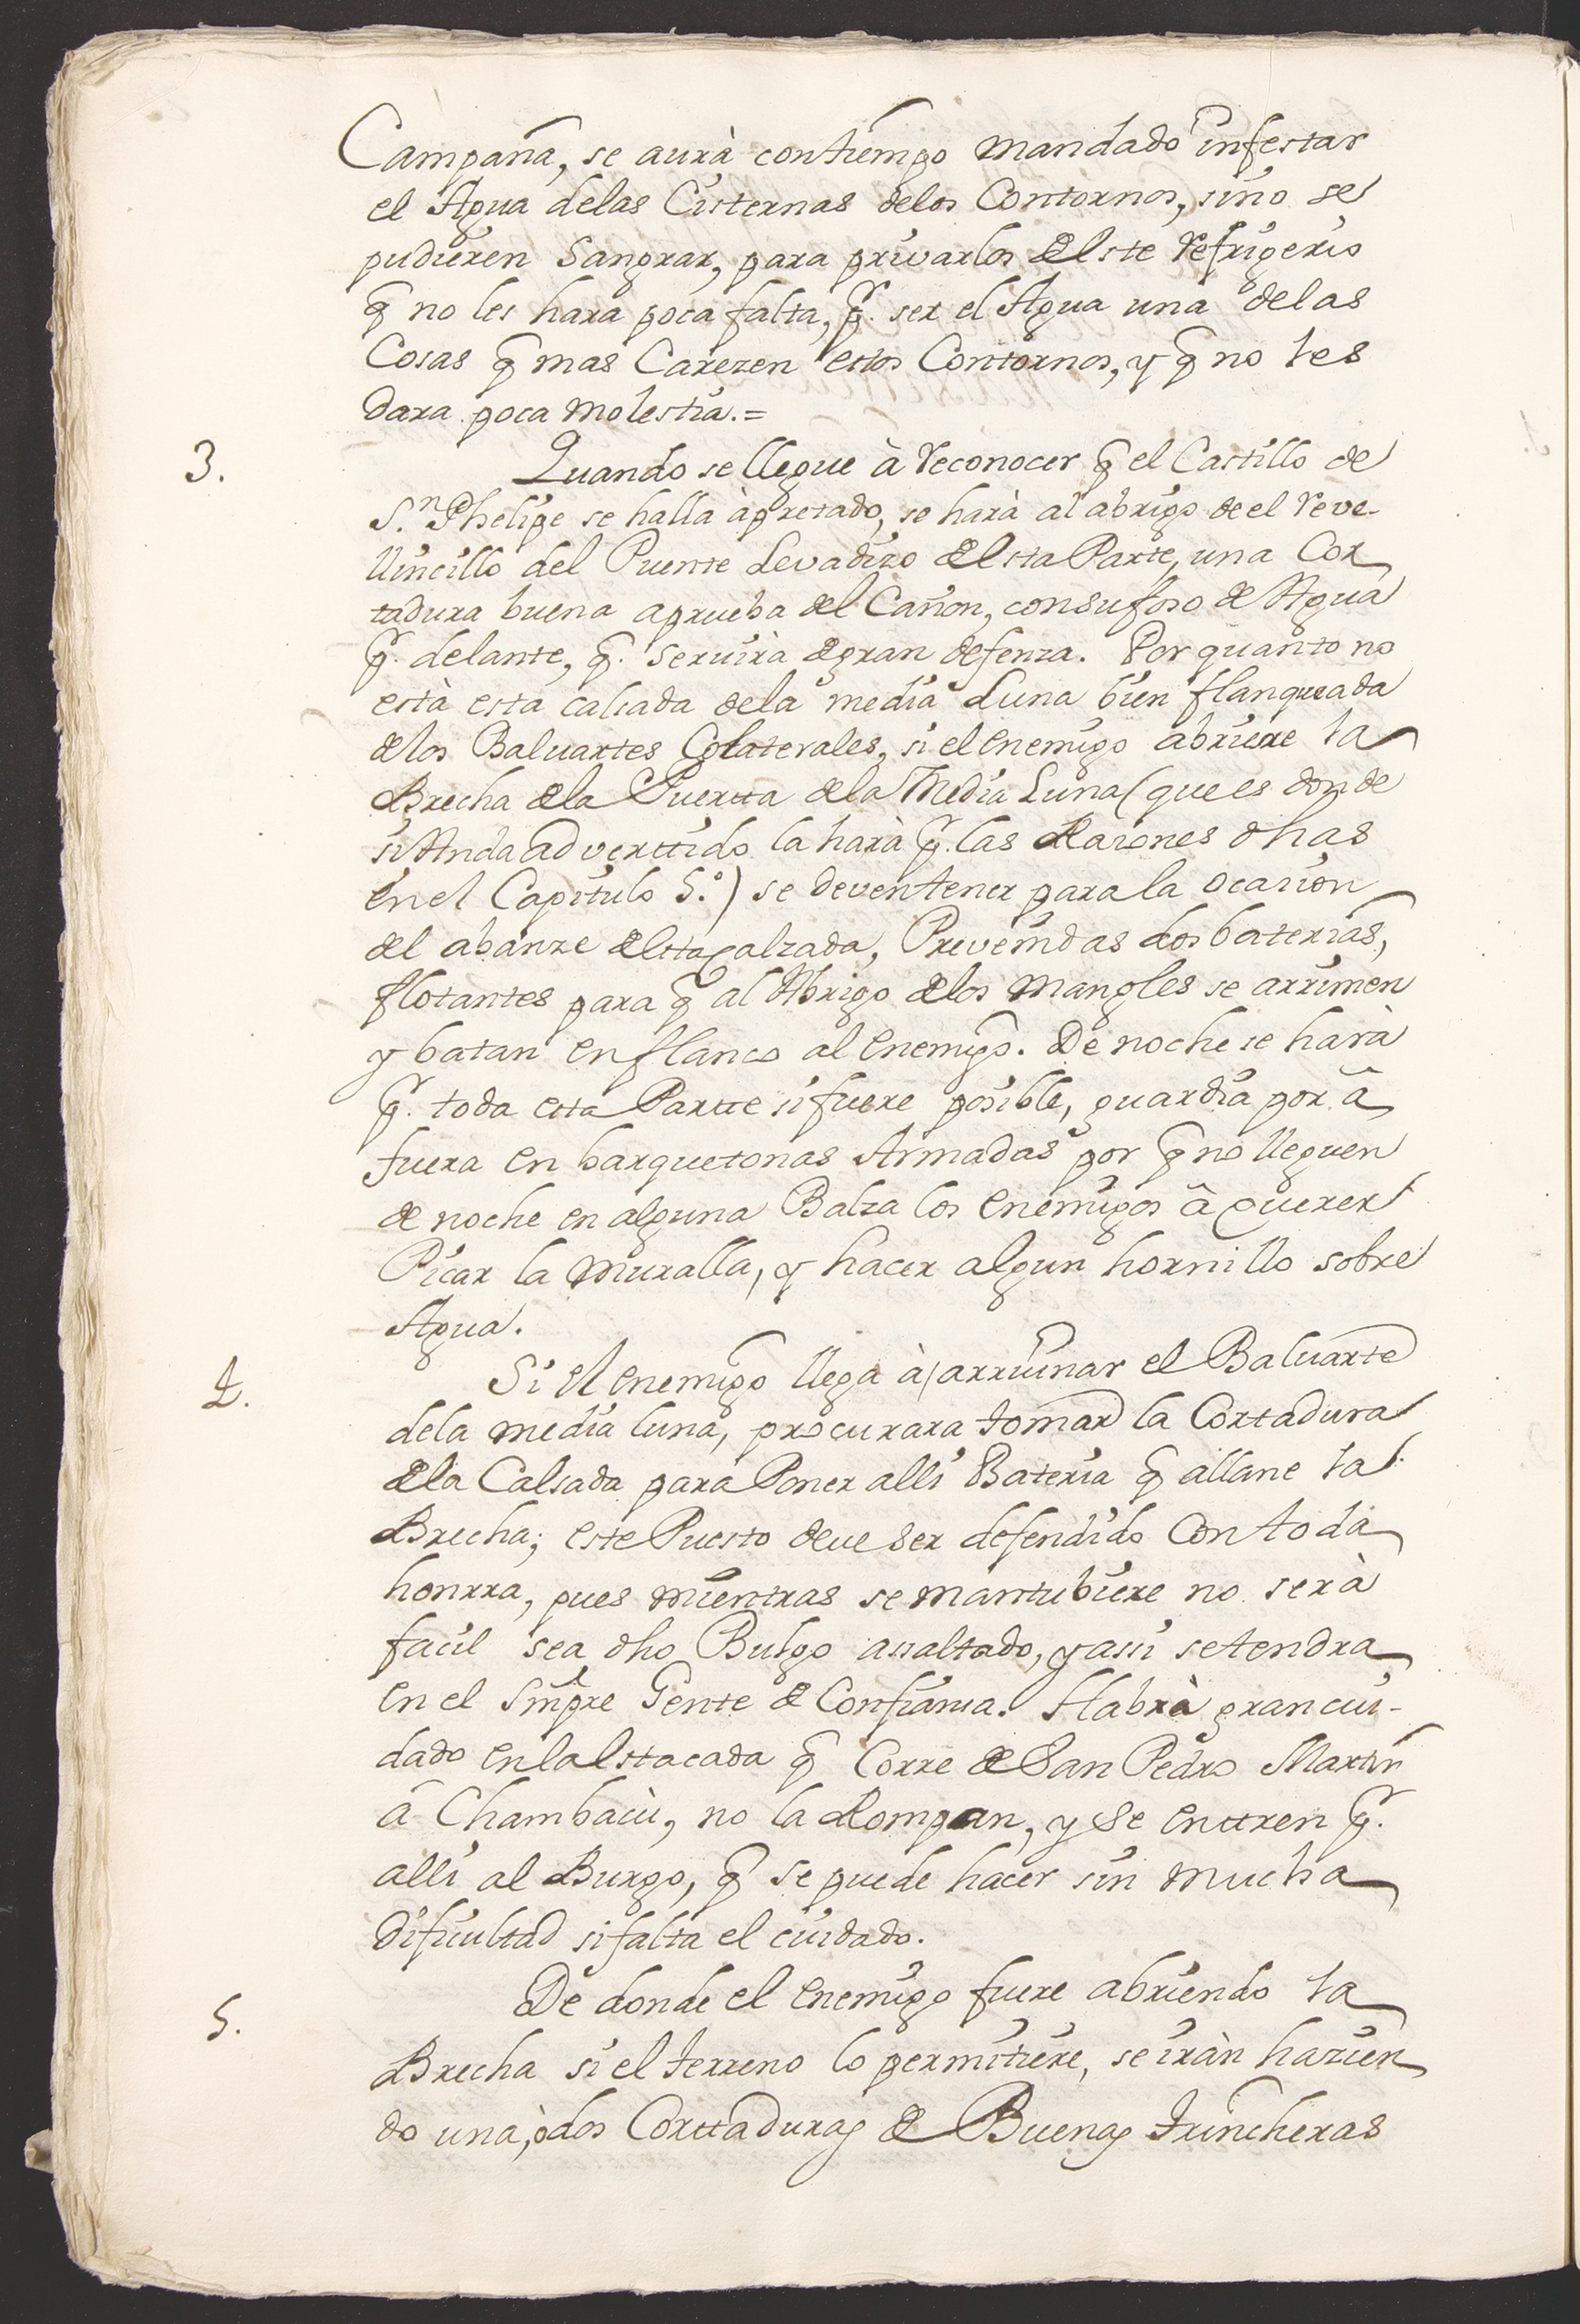 Campaña, se aurà contiempo mandado infestar
el Agua delas Cisternas delos Contornos, sino se
pudieren Sangrar, para privarlos deste refrigerio
q̃ no les hara poca falta, p̱. ser el Agua una delas
Cosas q̃ mas Carezen estos Contornos, y q̃ no les
dara poca molestia.=
3. Quando se llegue à reconocer q̃ el Castillo de
S.n Phelipe se halla àpretado, se harà al abrigo de el reve-
llincillo del Puente Levadizo desta Parte, una Cor
tadura buena aprueba del Cañon, consufoso de Agua
p̱. delante, q̃. seruirà degran defenza. Por quanto no
està esta calsada dela media Luna bien flanqueada
delos Baluartes Colaterales, si el enemigo abriere la
Brecha dela Puertta dela Media Luna (que es donde
si Anda advertido la harà p̱. las Razones dhas
en el Capitulo 5.º) se deven tener para la ocasion
del abanze desta calzada, Prevenidas dos baterias,
flotantes para q̃ al Abrigo delos Mangles se arrimen
y batan en flanco al enemigo. De noche se harà
p̱. toda esta Partte si fuere posible, guardia por â
fuera en barquetonas Armadas por q̃ no lleguen
de noche en alguna Balza los enemigos â querer
Picar la Muralla, y hacer algun hornillo sobre
Agua.
4. Si el enemigo llega à arruinar el Baluarte
dela media luna, procurara tomar la Cortadura
dela Calsada para Poner alli Bateria q̃ allane la
Brecha; este Puesto deue ser defendido con toda
honrra, pues mientras se mantubiere no serà
facil sea dho Bulgo assaltado, y assi se tendra
en el Smp̃re Gente de Confianza. Habrà gran cui-
dado en la estacada q̃ Corre de San Pedro Martin
â Chambacù, no la Rompan, y se enttren p̱.
alli al Burgo, q̃ se puede hacer sin mucha
Dificultad si falta el cuidado.
5. De donde el enemigo fuere abriendo la
Brecha si el terreno lo permitiere, se iràn hazien
do una, ò dos Corttaduras de Buenas trincheras